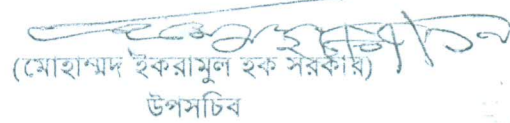 (মোহাম্মদ ইকরামুল হক সরকার)
উপসচিব